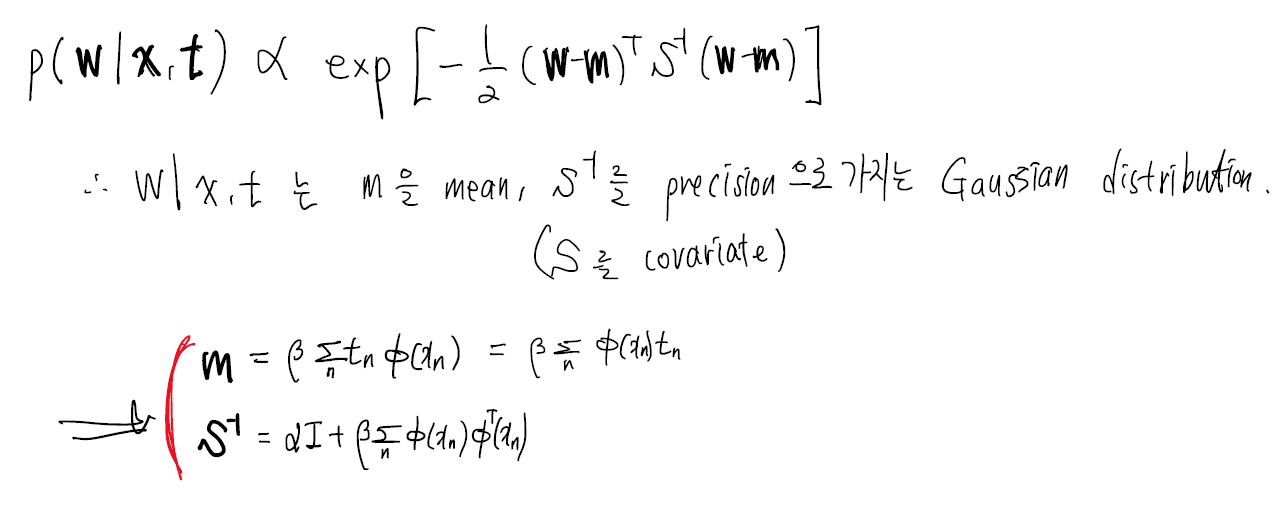 p(w|x,t) ∝ exp[-1/2 (w-m)ᵀ S⁻¹ (w-m)]
∴ w|x,t 는 m을 mean, S⁻¹를 precision으로 가지는 Gaussian distribution.
(S를 covariate)
m = β Σₙ tₙ ϕ(xₙ) = β Σₙ ϕ(xₙ)tₙ
S⁻¹ = αI + β Σₙ ϕ(xₙ)ϕᵀ(xₙ)